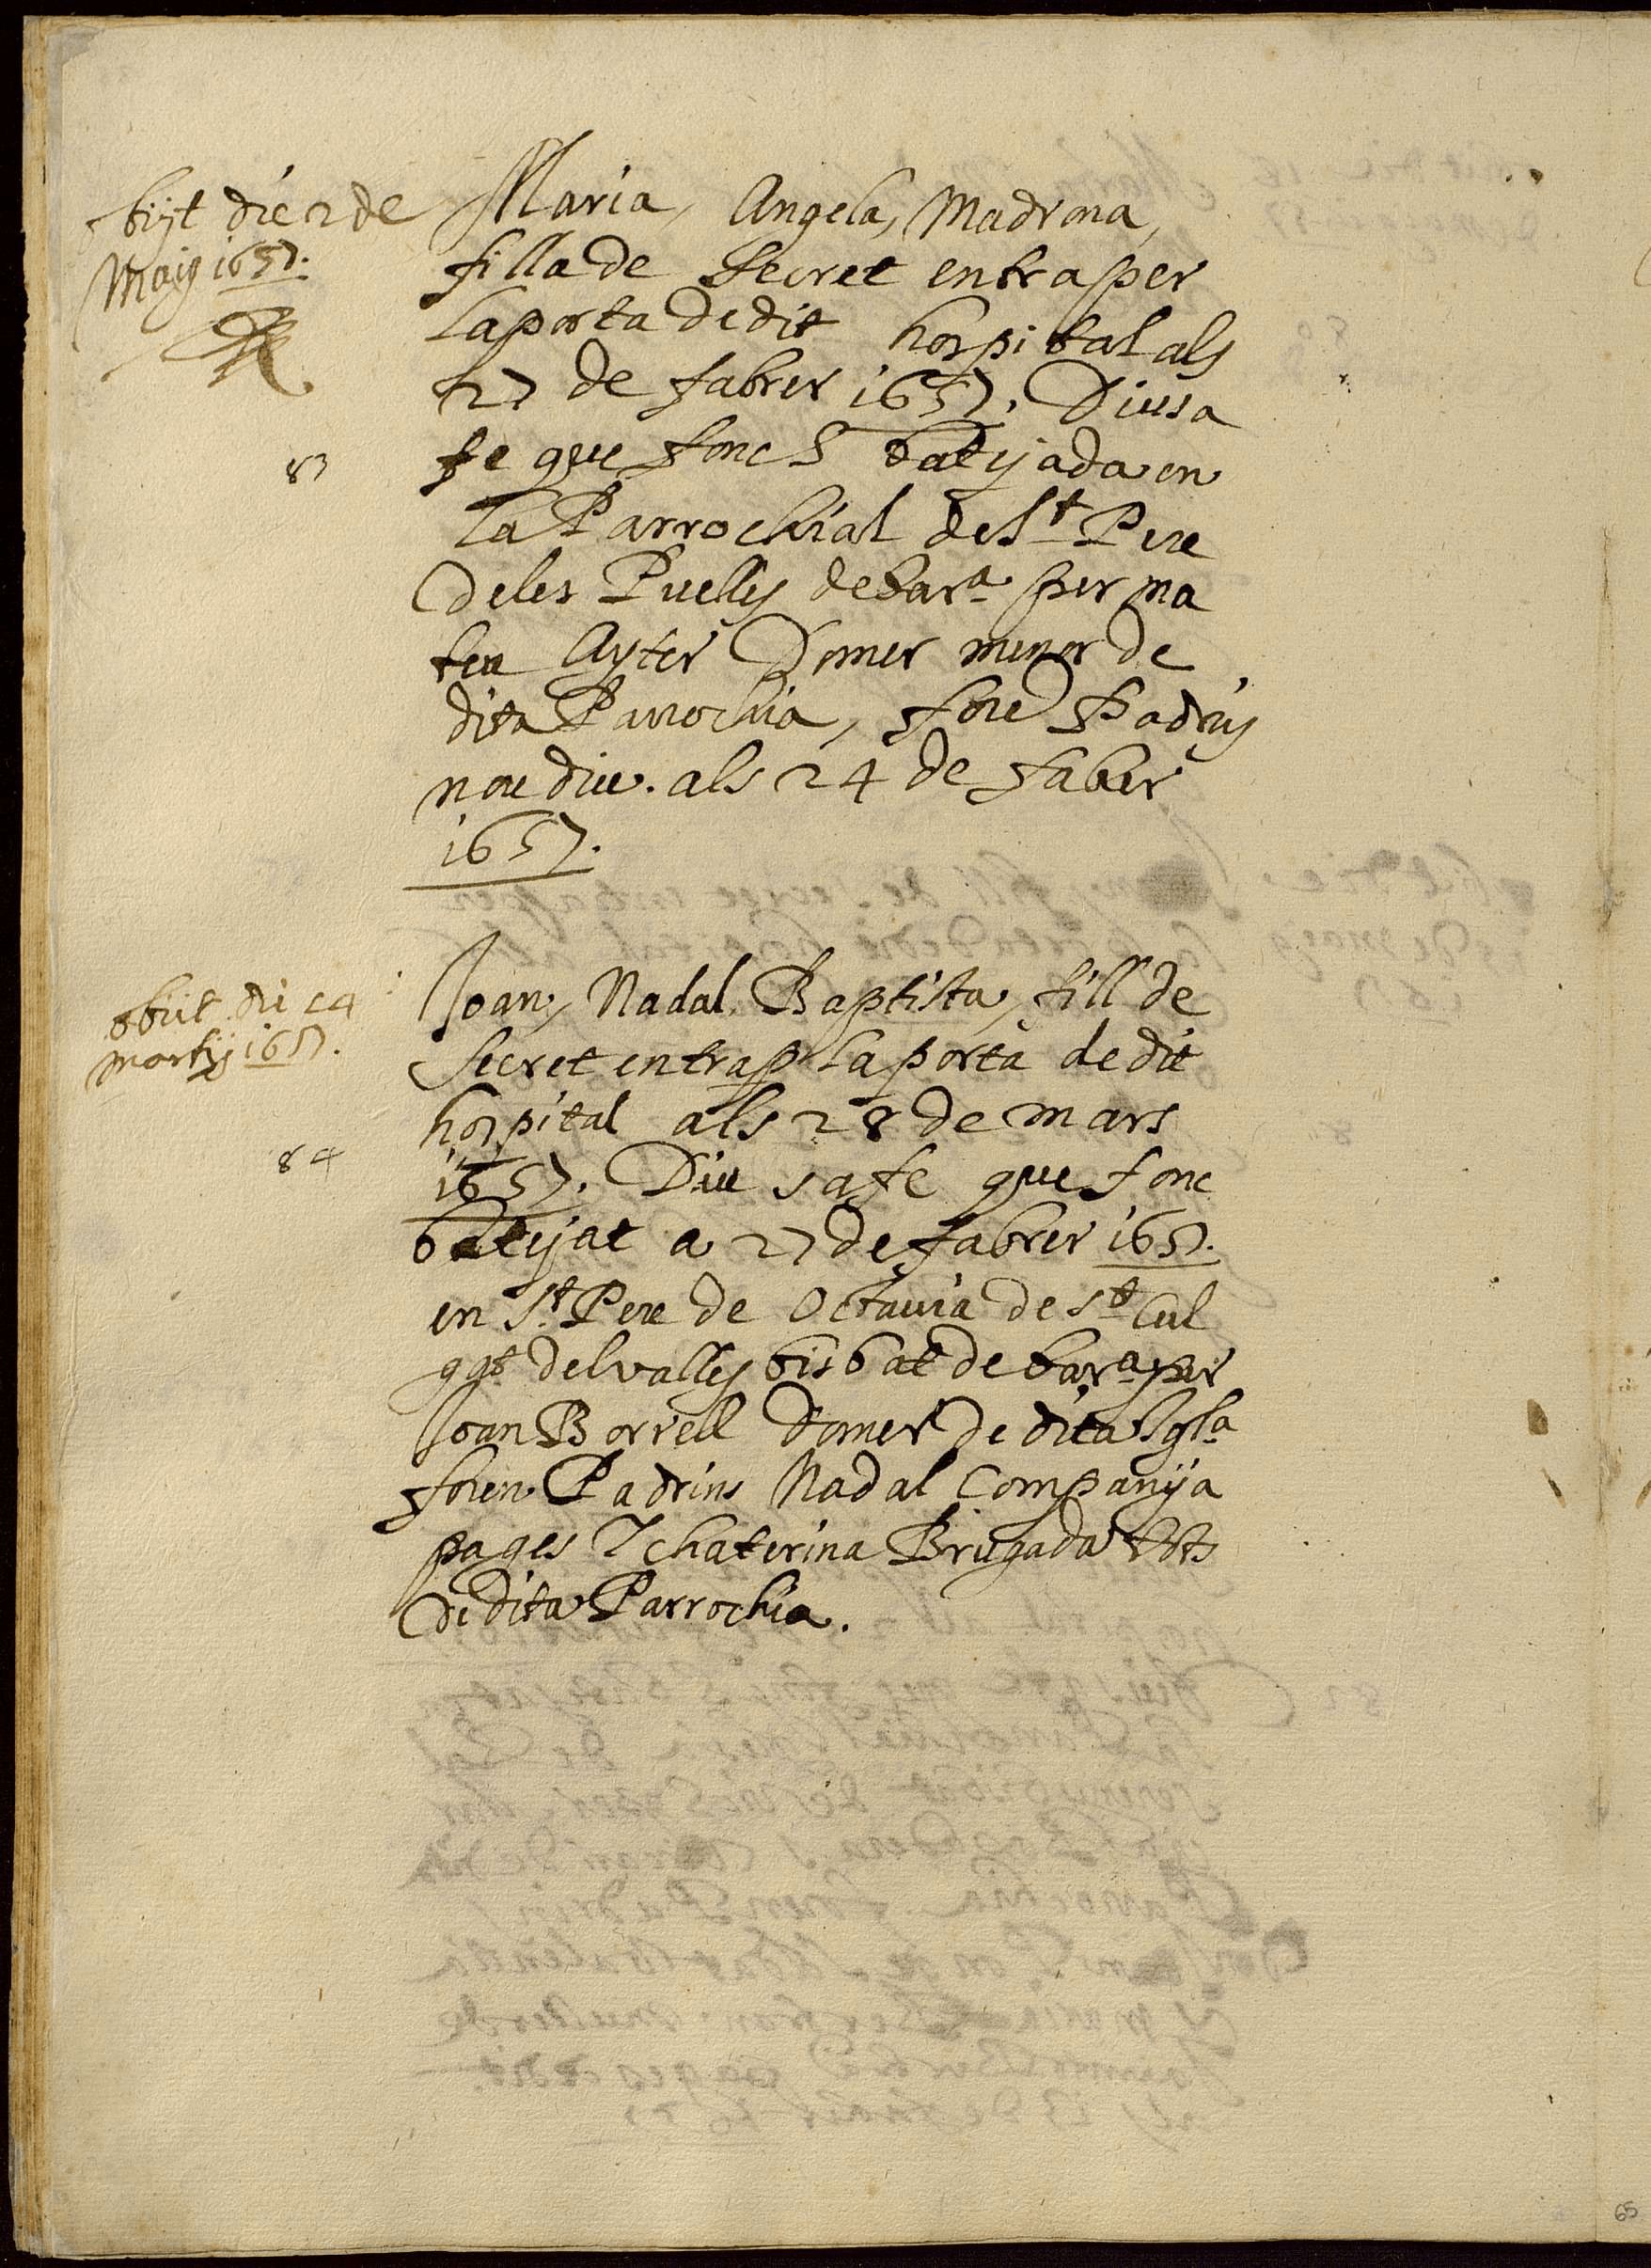 obijt die 2 de
Maig 1657.
83
Maria, Angela, Madrona,
filla de secret entra per
la porta de dit hospital als
27 de fabrer 1657. Diu sa
fe que fonc batejada en
la Parrochial de St Pere
de les Puelles de bara per ma
teu Ayter Domer menor de
dita Parrochia, foren Padrins
nou diu. als 24 de fabrer
1657.
obiit die 14
martij 1657.
84
Joan, Nadal, Baptista, fill de
secret entra p la porta de dit
hospital als 28 de mars
1657. Diu sa fe que fonc
batejat a 27 de fabrer 1657.
en St. Pere de Octauia de St Cul
gat del valles bisbat de bara per
Joan Borrell domer de dita Igla
foren Padrins Nadal Companÿa
pages I chaterina Brugada tots
de dita Parrochia.
65